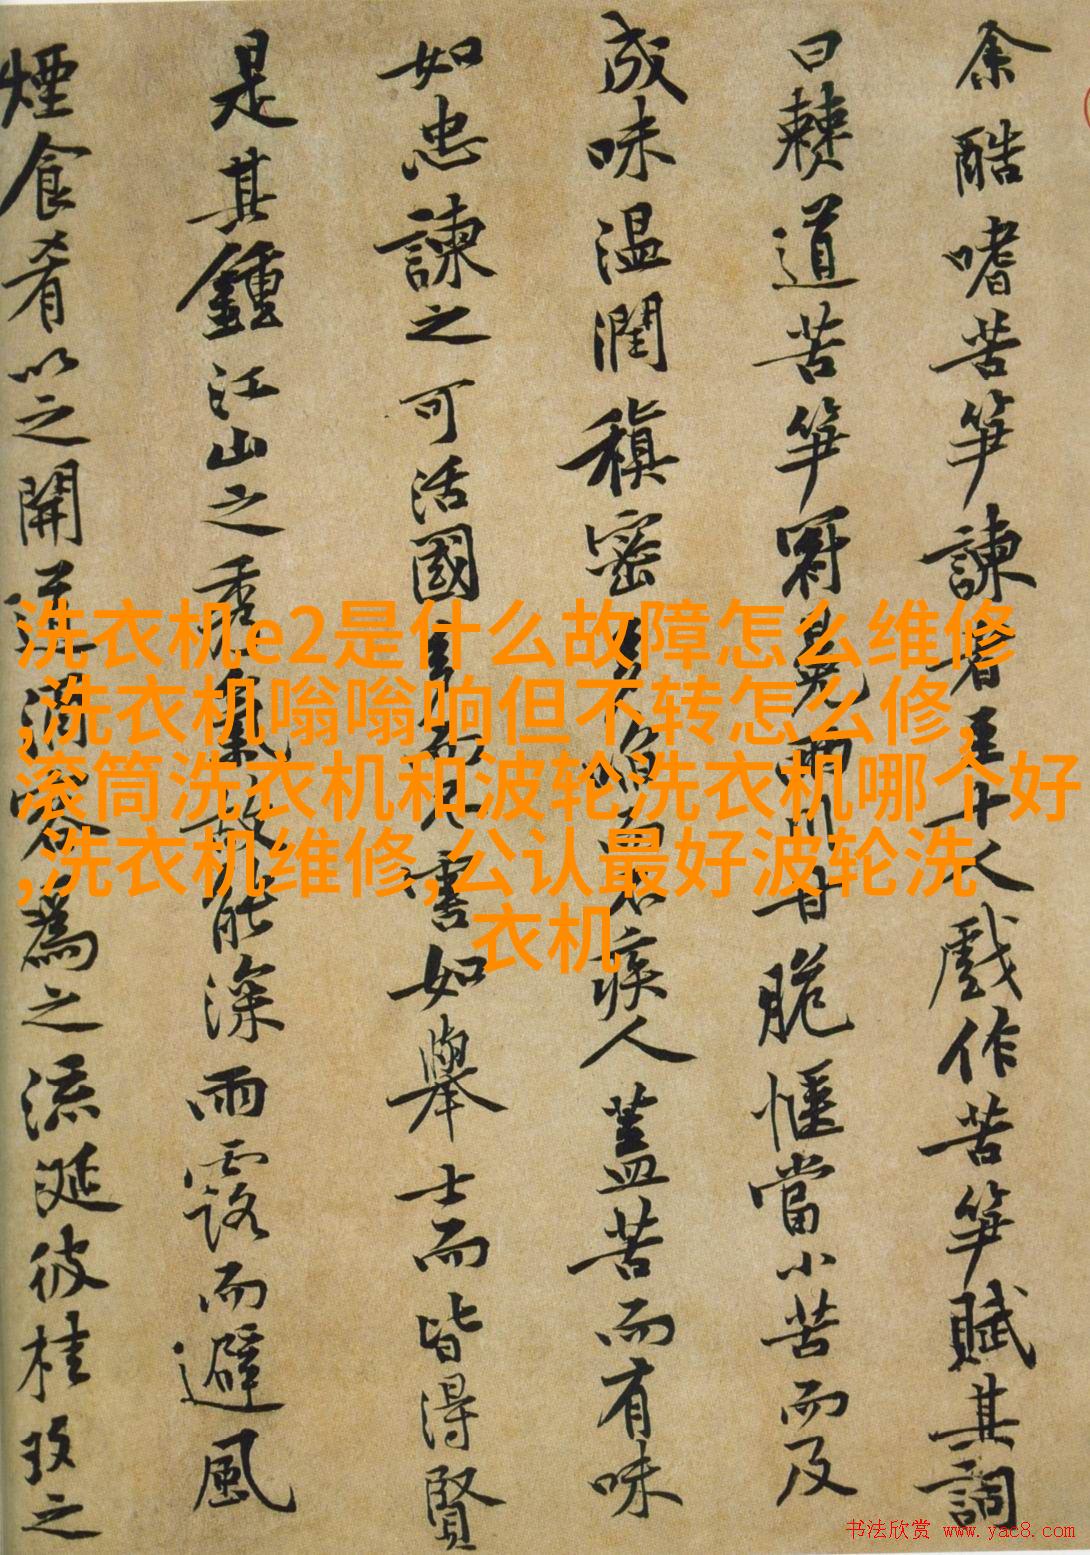 余酷嗜苦笋諫者至十人戲作苦笋賦其詞
曰僰道苦笋冠冕兩川甘脆愜當小苦而及
成味温潤稹密多啗而不疾人蓋苦而有味
如忠諫之可活國多而不害如舉士而皆得賢
是其鍾江山之秀氣故能深雨露而避風
煙食肴以之開道酒客爲之流涎彼桂玫之
洗衣机e2是什么故障怎么维修
,洗衣机嗡嗡响但不转怎么修,
滚筒洗衣机和波轮洗衣机哪个好
,洗衣机维修,公认最好波轮洗
衣机
书法欣赏 www.yac8.com